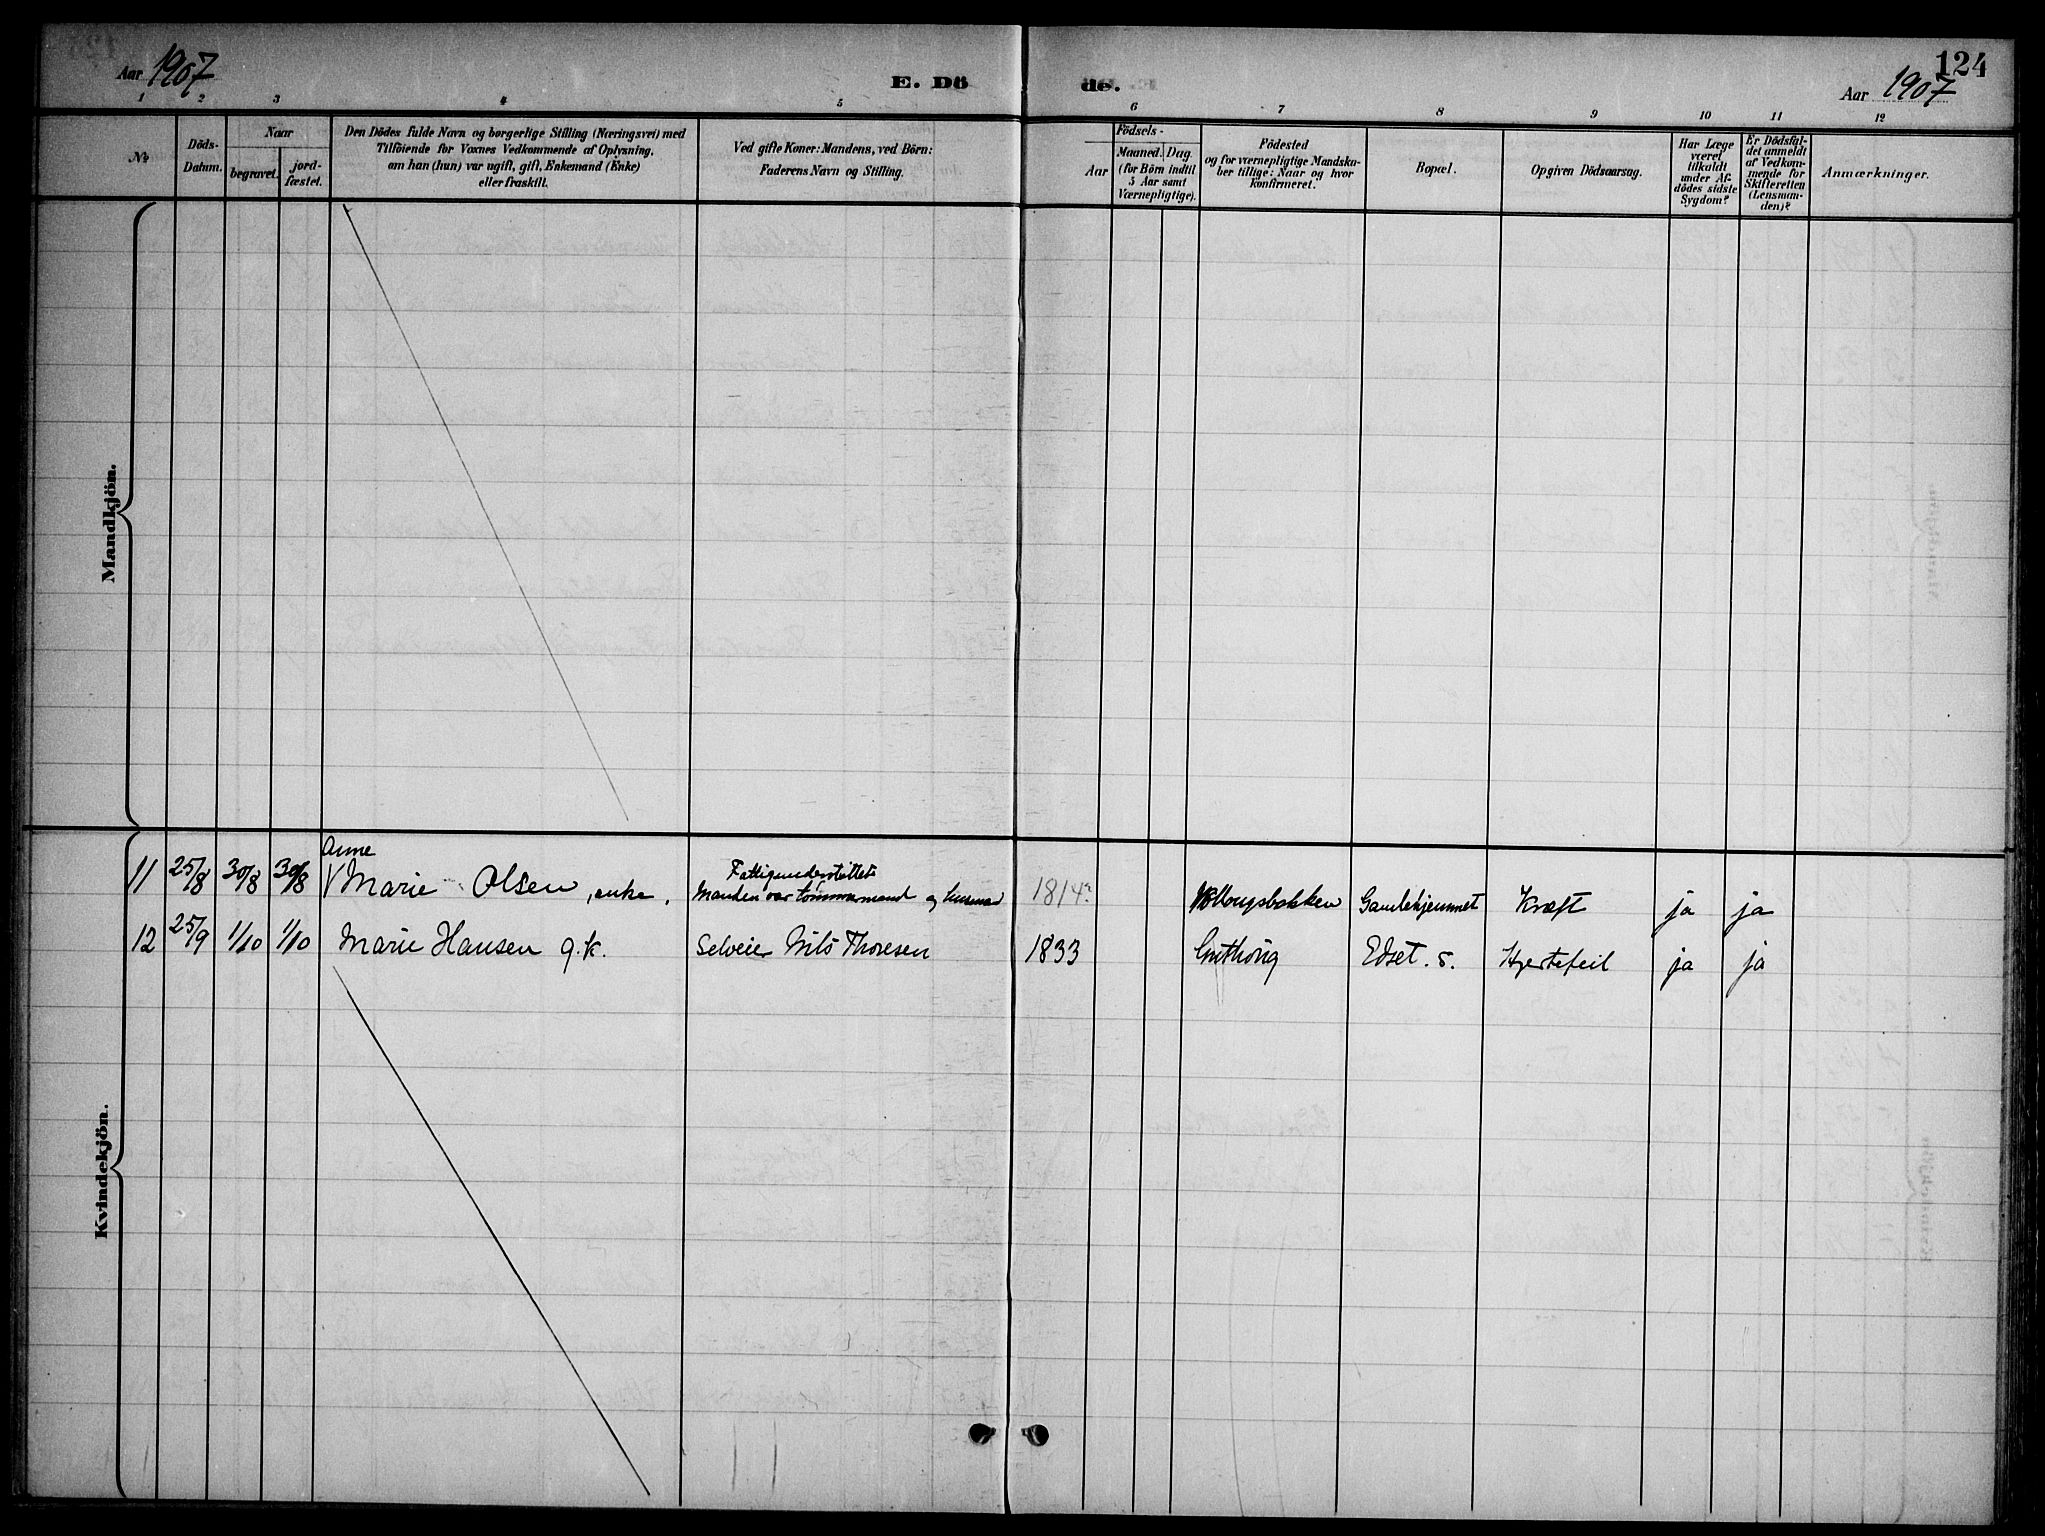 124
Aar 1907
E. Dö
de.
Aar 1907
1 2 3 4 5 6 7 8 9 10 11 12
No
Döds-
Datum.
Naar
begravet.
jord-
fæstet.
Den Dödes fulde Navn og borgerlige Stilling (Næringsvei) med
Tilföiende for Voxnes Vedkommende af Oplysning,
om han (hun) var ugift, gift, Enkemand (Enke)
eller fraskilt.
Ved gifte Koner: Mandens, ved Börn:
Faderens Navn og Stilling.
Födsels-
Aar
Maaned. Dag.
(for Börn indtil
5 Aar samt
Værnepligtige).
Födested
og for værnepligtige Mandska-
ber tillige: Naar og hvor
konfirmeret.
Bopæl.
Opgiven Dödsaarsag.
Har Læge
været
tilkaldt
under Af-
dödes sidste
Sygdom?
Er Dödsfal-
det anmeldt
af Vedkom-
mende for
Skifteretten
(Lensman-
den)?
Anmærkninger.
Mandkjön.
Kvindekjön.
Anne
Fattigunderstöttet
11 25/8 30/8 30/8 Marie Olsen, enke. Manden var tömmermand og husmand 1814? Gamlehjemmet Kræft ja ja
12 25/9 1/10 1/10 Marie Hansen g.k. Selveier Nils Thoresen 1833 Edset. s. Hjertefeil ja ja